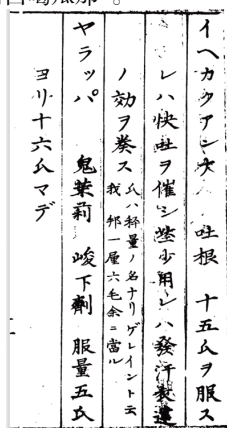 イヘカクアンナ 吐根 十五氏ヲ服ス
レハ快吐ヲ催シ些少用レハ發汗
ノ効ヲ奏ス 氏ハ秤量ノ名ナリゲレイント云
我邦一厘六毛余ニ當ル
ヤラッパ 鬼茉莉 峻下劑 服量五氏
ヨリ十六氏マデ